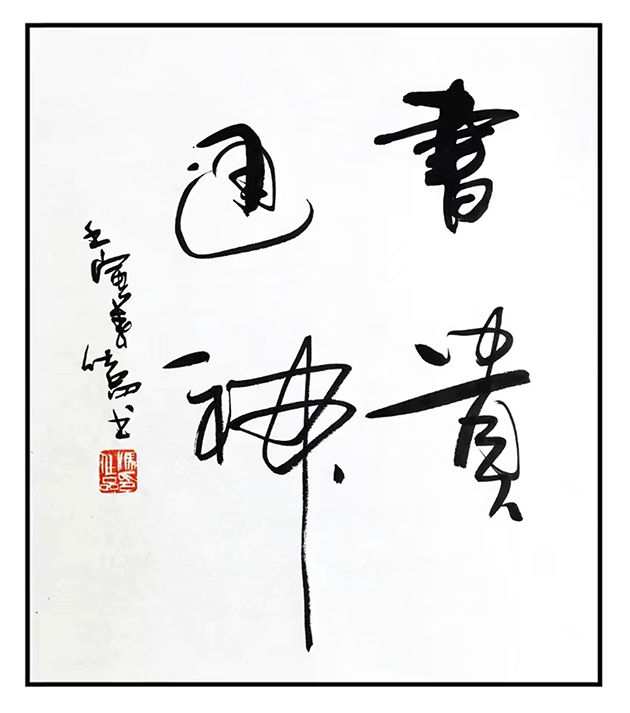 書貴
通神
壬寅年
書